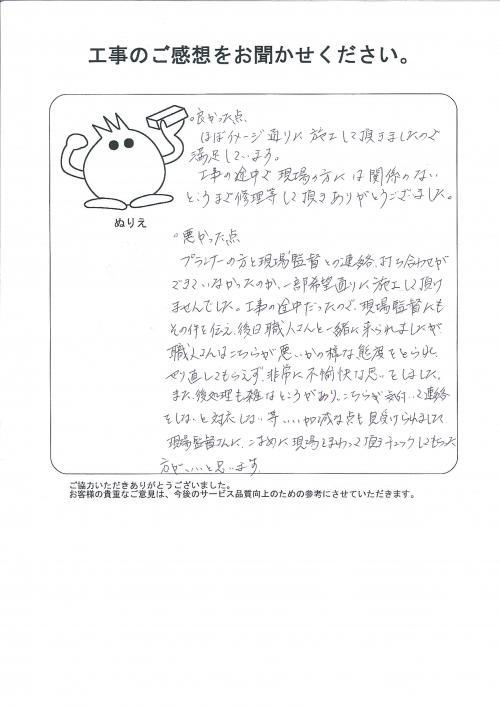 工事のご感想をお聞かせください。
○良かった点、
ほぼイメージ通りに施工して頂きましたので
満足しています。
工事の途中で現場の方には関係のない
ところまで修理等して頂きありがとうございました。
ぬりえ
○悪かった点
プランナーの方と現場監督との連絡、打ち合わせが
できていなかったのか、一部希望通りに施工して頂け
ませんでした。工事の途中だったので、現場監督にも
その件を伝え、後日職人さんと一緒に来られましたが
職人さんはこちらが悪いかの様な態度をとられ、
やり直してもらえず、非常に不愉快な思いをしました。
また、後処理も雑なところがあり、こちらが気付いて連絡
をしないと対応しない等いい加減な点も見受けられました
現場監督さんに、こまめに現場をまわって頂きチェックしてもらった
方がいいと思います
ご協力いただきありがとうございました。
お客様の貴重なご意見は、今後のサービス品質向上のための参考にさせていただきます。